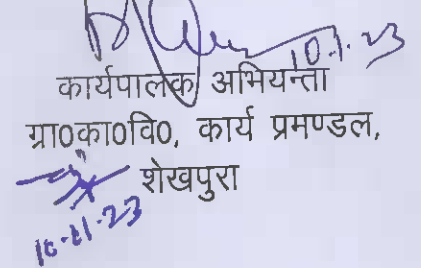 10.1.23
कार्यपालक अभियन्ता
ग्रा0का0वि0, कार्य प्रमण्डल,
शेखपुरा
10-01-23